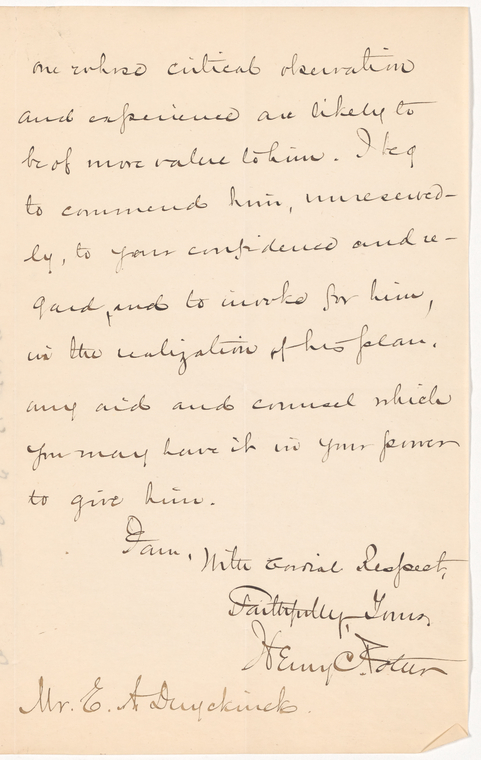 one whose critical observation
and experience are likely to
be of more value to him. I beg
to commend him, unreserved-
ly, to your confidence and re-
gard, and to invoke for him,
in the realization of his plan,
any aid and counsel which
you may have it in your power
to give him.
I am, With cordial Respect,
Faithfully, Yours,
Henry C. Potter
Mr. E. A. Duyckinck.